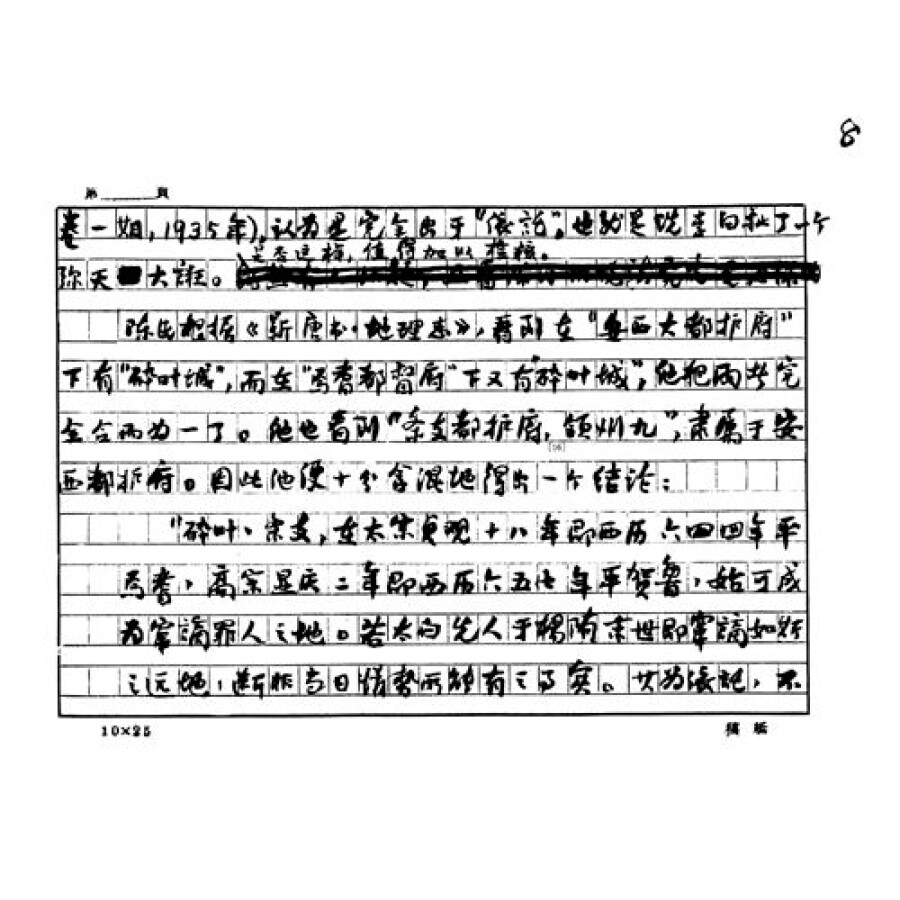 8
第 頁
卷一期,1935年),认为是完全出于“假托”,也就是说李白扯了一个
是否这样,值得加以推核。
弥天大谎。
陈氏根据《新唐书·地理志》,看到在“安西大都护府”
下有“碎叶城”,而在“焉耆都督府”下又有“碎叶城”,他把两者完
全合而为一了。他也看到“条支都护府,领州九”,隶属于安
西都护府。因此他便十分含混地得出一个结论:
“碎叶、条支,在太宗贞观十八年即西历六四四年平
焉耆,高宗显庆二年即西历六五七年平贺鲁,始可成
为窜谪罪人之地。若太白先人于杨隋末世即窜谪如斯
之远地,断非当日情势所能有之事实。其为假托,不
10×25
稿 纸